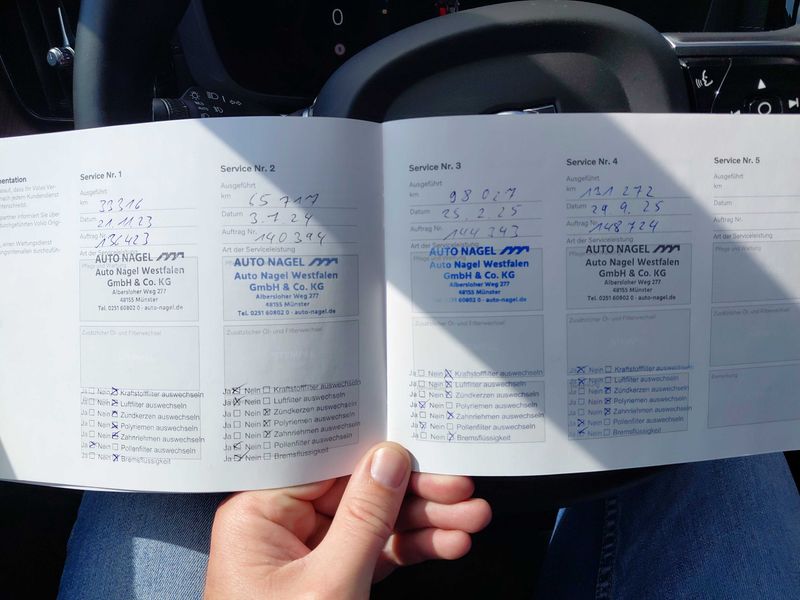 mentation
Service Nr. 1
Ausgeführt
km 33316
Datum 21.11.23
Auftrag Nr. 136423
Art der Serviceleistung
AUTO NAGEL
Auto Nagel Westfalen
GmbH & Co. KG
Albersloher Weg 277
48155 Münster
Tel. 0251 60802 0 · auto-nagel.de
Zusätzlicher Öl- und Filterwechsel
Ja Nein Kraftstofffilter auswechseln
Ja Nein Luftfilter auswechseln
Ja Nein Zündkerzen auswechseln
Ja Nein Polyriemen auswechseln
Ja Nein Zahnriemen auswechseln
Ja Nein Pollenfilter auswechseln
Ja Nein Bremsflüssigkeit
Service Nr. 2
Ausgeführt
km 65 717
Datum 3.7.24
Auftrag Nr. 140394
Art der Serviceleistung
AUTO NAGEL
Auto Nagel Westfalen
GmbH & Co. KG
Albersloher Weg 277
48155 Münster
Tel. 0251 60802 0 · auto-nagel.de
Zusätzlicher Öl- und Filterwechsel
Ja Nein Kraftstofffilter auswechseln
Ja Nein Luftfilter auswechseln
Ja Nein Zündkerzen auswechseln
Ja Nein Polyriemen auswechseln
Ja Nein Zahnriemen auswechseln
Ja Nein Pollenfilter auswechseln
Ja Nein Bremsflüssigkeit
Service Nr. 3
Ausgeführt
km 98 027
Datum 25.2.25
Auftrag Nr. 144343
Art der Serviceleistung
AUTO NAGEL
Auto Nagel Westfalen
GmbH & Co. KG
Albersloher Weg 277
48155 Münster
Tel. 0251 60802 0 · auto-nagel.de
Zusätzlicher Öl- und Filterwechsel
Ja Nein Kraftstofffilter auswechseln
Ja Nein Luftfilter auswechseln
Ja Nein Zündkerzen auswechseln
Ja Nein Polyriemen auswechseln
Ja Nein Zahnriemen auswechseln
Ja Nein Pollenfilter auswechseln
Ja Nein Bremsflüssigkeit
Service Nr. 4
Ausgeführt
km 131 272
Datum 29.9.25
Auftrag Nr. 148724
Art der Serviceleistung
AUTO NAGEL
Auto Nagel Westfalen
GmbH & Co. KG
Albersloher Weg 277
48155 Münster
Tel. 0251 60802 0 · auto-nagel.de
Zusätzlicher Öl- und Filterwechsel
Ja Nein Kraftstofffilter auswechseln
Ja Nein Luftfilter auswechseln
Ja Nein Zündkerzen auswechseln
Ja Nein Polyriemen auswechseln
Ja Nein Zahnriemen auswechseln
Ja Nein Pollenfilter auswechseln
Ja Nein Bremsflüssigkeit
Service Nr. 5
Ausgeführt
km
Datum
Auftrag Nr.
Art der Serviceleistung
Pflege und Wartung
Bemerkung